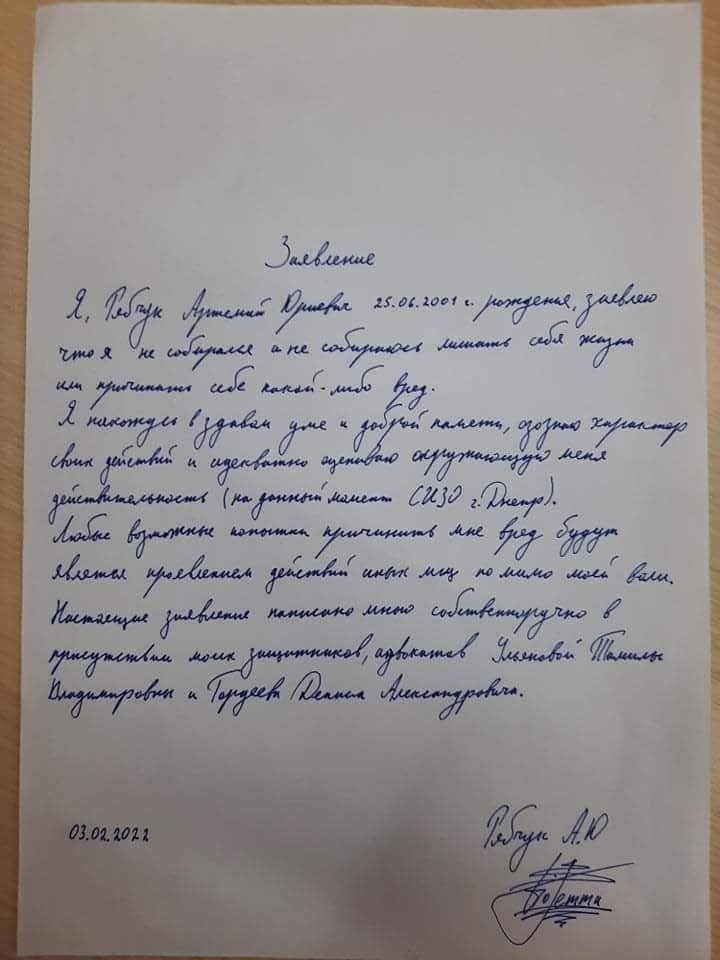 Заявление
Я, Рябчук Артемий Юриевич 25.06.2001 г. рождения, заевлею
что я не собиралсе и не собираюсь лишать себя жизни
или причинать себе какой-либо вред.
Я нахождусь в здавом уме и доброй памети, созознаю характер
своих действий и адекватно оцениваю окружающую меня
действительность (на данный момент СИЗО г. Днепр).
Любые возможные попытки причинить мне вред будут
явлется проевлением действий иных лиц помимо моей воли.
Настоещие заевление написано мною собственноручно в
присутствии моих защитников, адвокатов Ульяновой Тамилы
Владимировны и Гордеева Дениса Александровича.
03.02.2022
Рябчук А.Ю